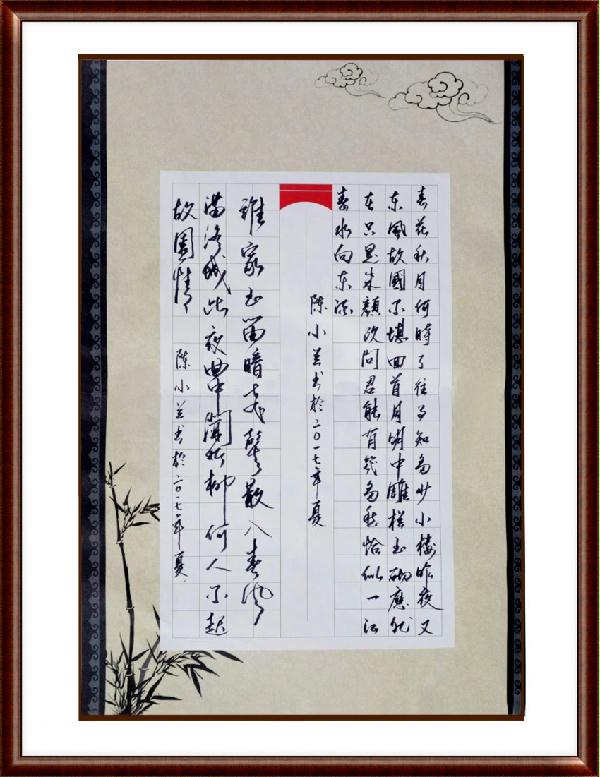 春花秋月何時了往事知多少小樓昨夜又
东風故國不堪回首月明中雕栏玉砌應犹
在只是朱顏改问君能有幾多愁恰似一江
春水向东流
陈小兰书於二〇一七年夏
誰家玉笛暗飞聲散入春风
滿洛城此夜曲中闻折柳何人不起
故園情
陈小兰书於二〇一七年夏